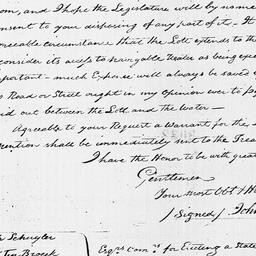 om, and I hope the Legislature will by no me
onsent to your disposing of any part of it. It
reeable circumstance that the Lott extends to th
consider its access to navigable Water as being expe
portant - much Expence will always be saved
Road or Street ought in my opinion ever to
id out between the Lott and the Water -
Agreable to your Request a Warrant for the
ention shall be immediately sent to the Trea
I have the Honor to be with great
Gentlemen
Your most Obt. & H
(Signed) John
Schuyler
Ten Broeck
Esqrs. Coms. for Erecting a State